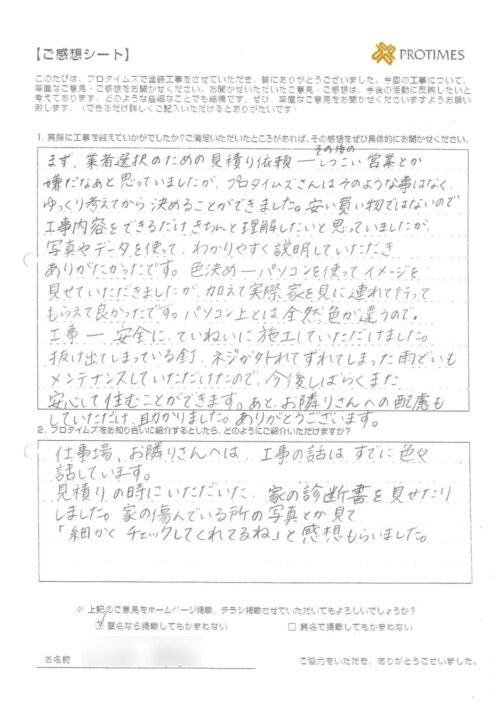 【ご感想シート】
PROTIMES
このたびは、プロタイムズで塗装工事をさせていただき、誠にありがとうございました。今回の工事について、
率直なご意見・ご感想をお聞かせください。お聞かせいただいたご意見・ご感想は、今後の活動に反映したいと
考えております。どのような些細なことでも結構です。ぜひ、率直なご意見をお聞かせくださいますようお願い
致します。（できるだけ詳しくご記入いただけるとありがたいです）
1. 実際に工事を終えていかがでしたか？ご満足いただいたところがあれば、その感想をぜひ具体的にお聞かせください。
その後の
まず、業者選択のための見積り依頼ーしつこい営業とか
嫌だなあと思っていましたが、プロタイムズさんはそのような事はなく、
ゆっくり考えてから決めることができました。安い買い物ではないので
工事内容をできるだけきちんと理解したいと思っていましたが、
写真やデータを使って、わかりやすく説明していただき
ありがたかったです。色決めーパソコンを使ってイメージを
見せていただきましたが、加えて実際家を見に連れて行って
もらえて良かったです。パソコン上とは全然色が違うので。
工事ー安全に、ていねいに施工していただけました。
抜け出てしまっている釘、ネジが外れてずれてしまった雨どいも
メンテナンスしていただけたので、今後しばらくまた
安心して住むことができます。あと、お隣りさんへの配慮も
していただけ、助かりました。ありがとうございます。
2. プロタイムズをお知り合いに紹介するとしたら、どのようにご紹介いただけますか？
仕事場、お隣りさんへは、工事の話はすでに色々
話しています。
見積りの時にいただいた、家の診断書を見せたり
しました。家の傷んでいる所の写真とか見て
「細かくチェックしてくれてるね」と感想もらいました。
※ 上記のご意見をホームページ掲載、チラシ掲載させていただいてもよろしいでしょうか？
☑ 匿名なら掲載してもかまわない　□ 実名で掲載してもかまわない
お名前
ご協力をいただき、ありがとうございました。